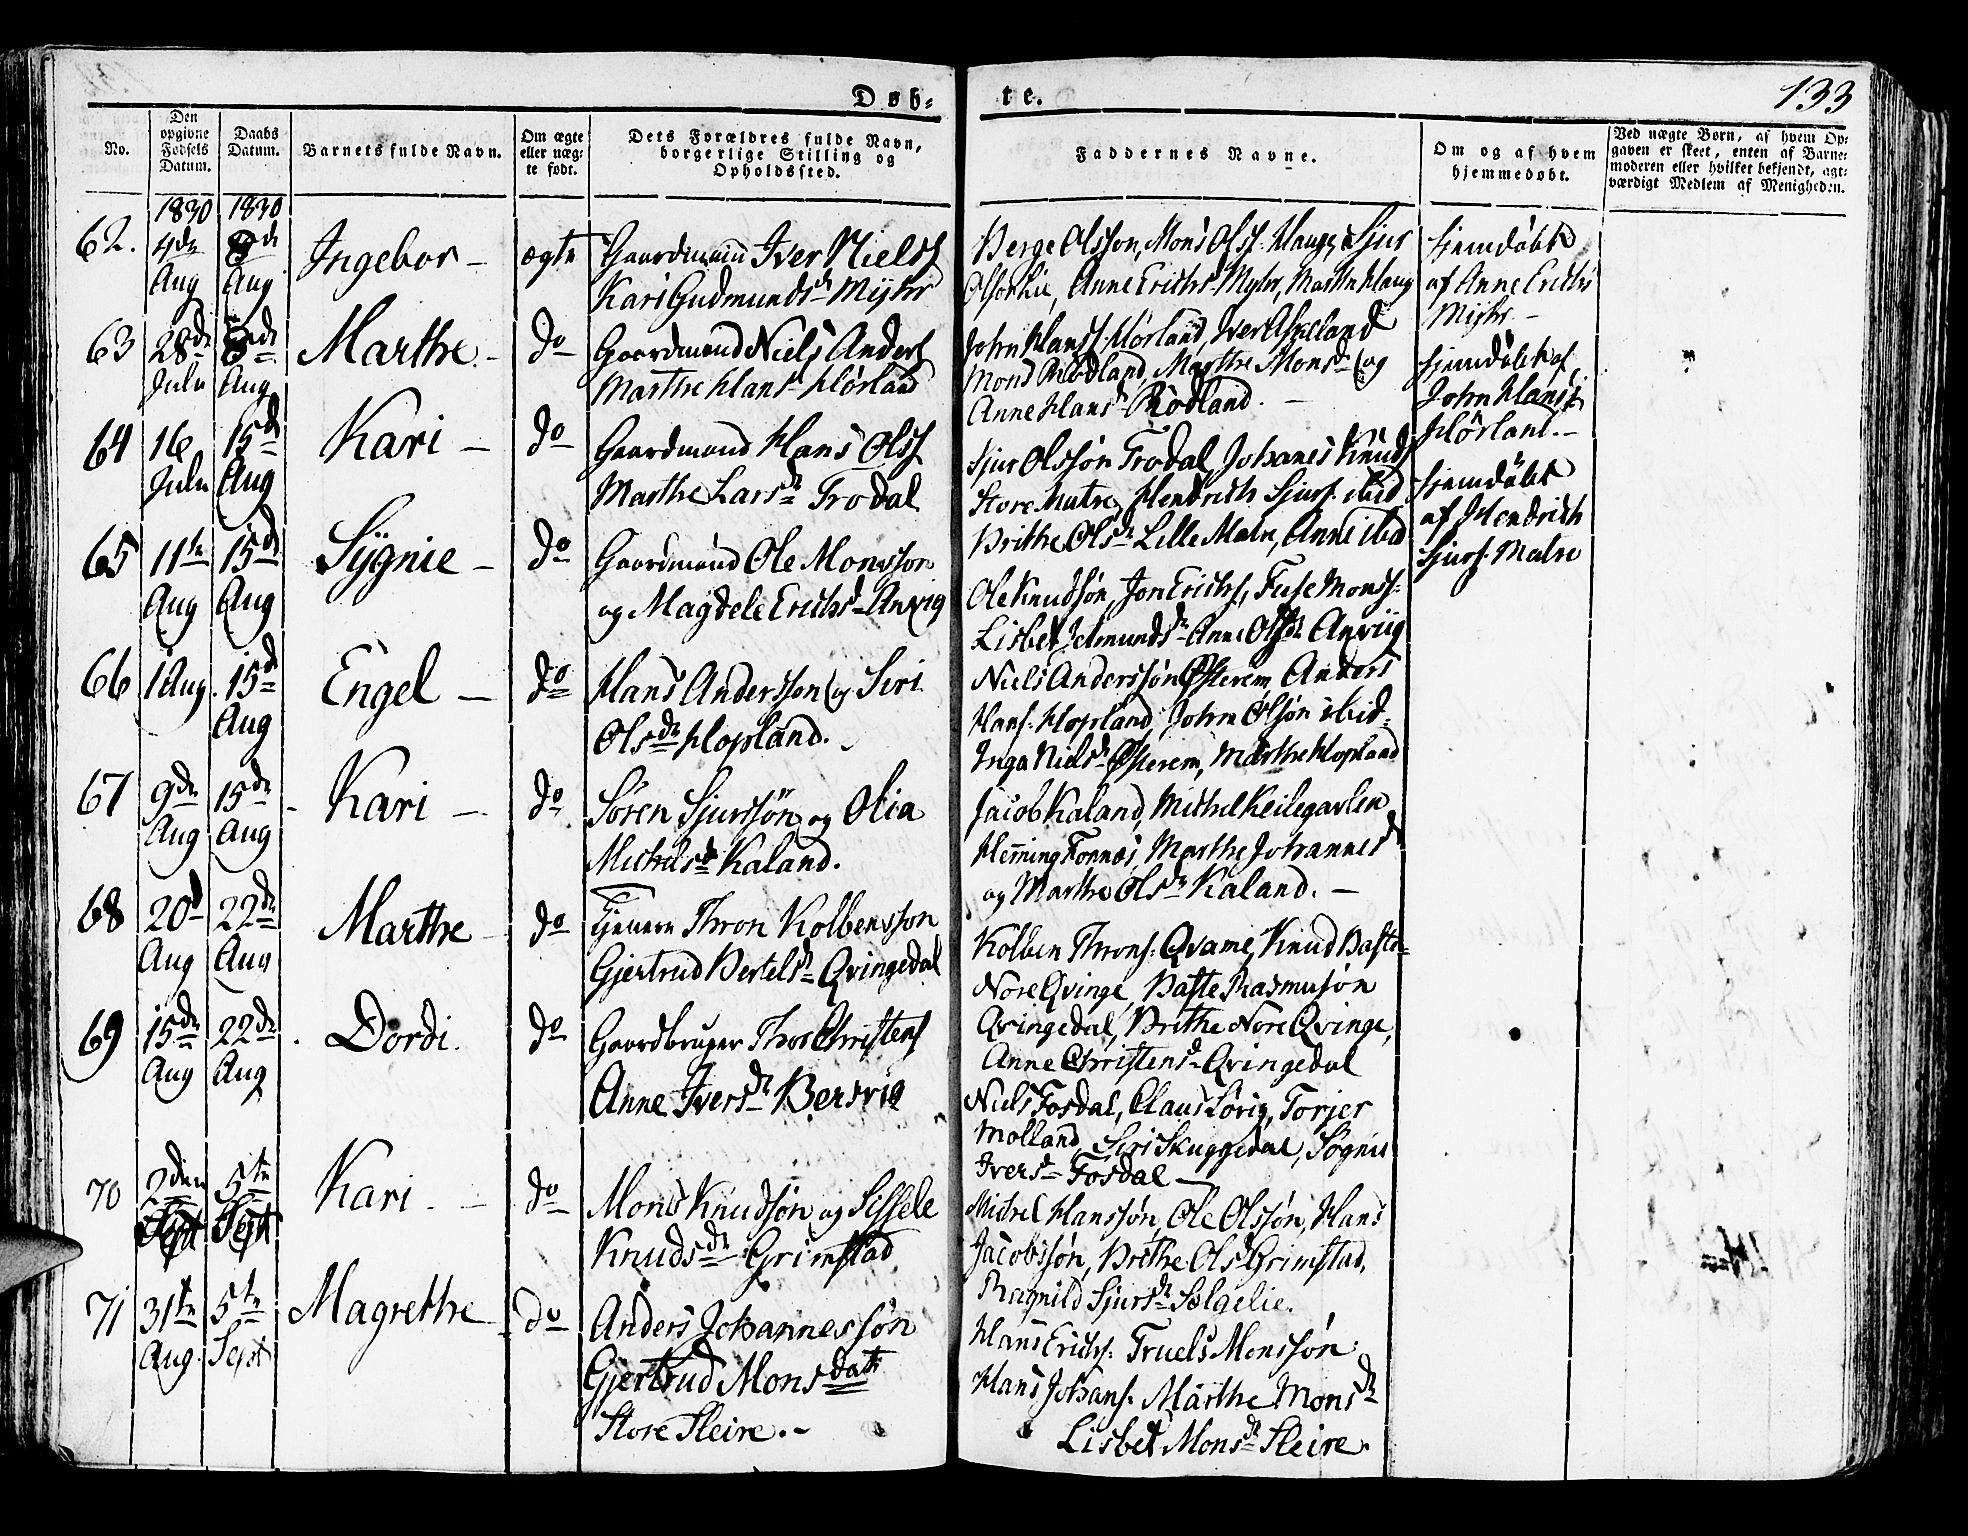 133
Døb-
te.
No.
Den opgivne Fødsels Datum.
Daabs Datum.
Barnets fulde Navn.
Om ægte eller uæg-
te født.
Dets Forældres fulde Navn,
borgerlige Stilling og
Opholdssted.
Faddernes Navne.
Om og af hvem
hjemmedøbt.
Ved uægte Børn, af hvem Op-
gaven er skeet, enten af Barne-
moderen eller hvilket bekjendt, agt-
værdigt Medlem af Menigheden.
1830 1830
62. 4de Aug 8de Aug Ingebor - ægte
Gaardmann Iver Nielss
Kari Gudmundsdr Myhr
Berge Olsson, Mons Olss. Haug, Sjur
Olson Lie, Anne Erichs Myhr, Marthe Haug
hjemdöbt
af Anne Erichs
Myhr. -
63 28de Julii 8de Aug Marthe. - do
Gaardmand Niels Anders
Marthe Hans- Hörland
John Hanss. Hörland, Iver Askeland
Mons Rödland, Marthe Monsdr og
Anne Hansdr Rödland. -
hjemdöbt af
John Hanss
Hörland. -
64 16 Julii 15d Aug Kari - do
Gaardmand Hans Olss
Marthe Larsdr Trodal
Sjur Olssön Trodal, Johanes Knuds
Store Matre, Hendrich Sjurs. ibid
Brithe Olsdr Lille Matre, Anne ibid
hjemdöbt
af Hendrich
Sjurs. Matre
65 11te Aug 15d Aug Sÿgnie - do
Gaardmand Ole Monsson
og Magdele Erichsdr Anvig
Ole Knudsön, Jon Erichs, Fuse Monss.
Lisbet Jetmundsdr Anne Olsdr Anviig
66 1 Aug. 15d Aug Engel - do
Hans Andersson og Siri
Olsdr Hopland. -
Niels Anderssön Österem, Anders
Hans. Hopland, John Olsön ibid-
Inga Nielsdr Österem, Marthe Hopland
67 9de Aug 15de Aug - Kari - do
Sören Sjurssön og Olia
Michelsdr Kaland.
Jacob Kaland, Michel Keilegavlen
Henning Fonnes, Marthe Johannesd
og Marthe Olsdr Kaland. -
68 20d Aug 22de Aug Marthe - do
Tjenern Thron Kolbensson
Gjertrud Bertelsdr Qvingedal
Kolben Throns. Qvame, Knud Baste-
Nore Qvinge, Baste Rasmusön
Qvingedal, Brithe Nore Qvinge,
Anne Christensd- Qvingedal
69 15de Aug 22de Aug . Dordi. do
Gaardbruger Thor Christens
Anne Iversdr Bersvig
Niels Fosdal, Claus Sörig, Torjer
Molland, Siri Skuggedal, Sögnie
Iversd- Fosdal -
70 2den Sept 5te Sept Kari. - do
Mons Knudsön og Sissele
Knudsdr Grimstad
Michel Hanssön, Ole Olssön, Hans
Jacobssön, Brithe Olsd Grimstad,
Ragnild Sjursdr Solgelie.
71 31te Aug. 5te Sept Magrethe - do
Anders Johannessön
Gjertrud Monsdatr
Store Fleire. -
Hans Erichs. Truels Monssön
Hans Johans. Marthe Monsdr
Lisbet Monsdr Fleire.